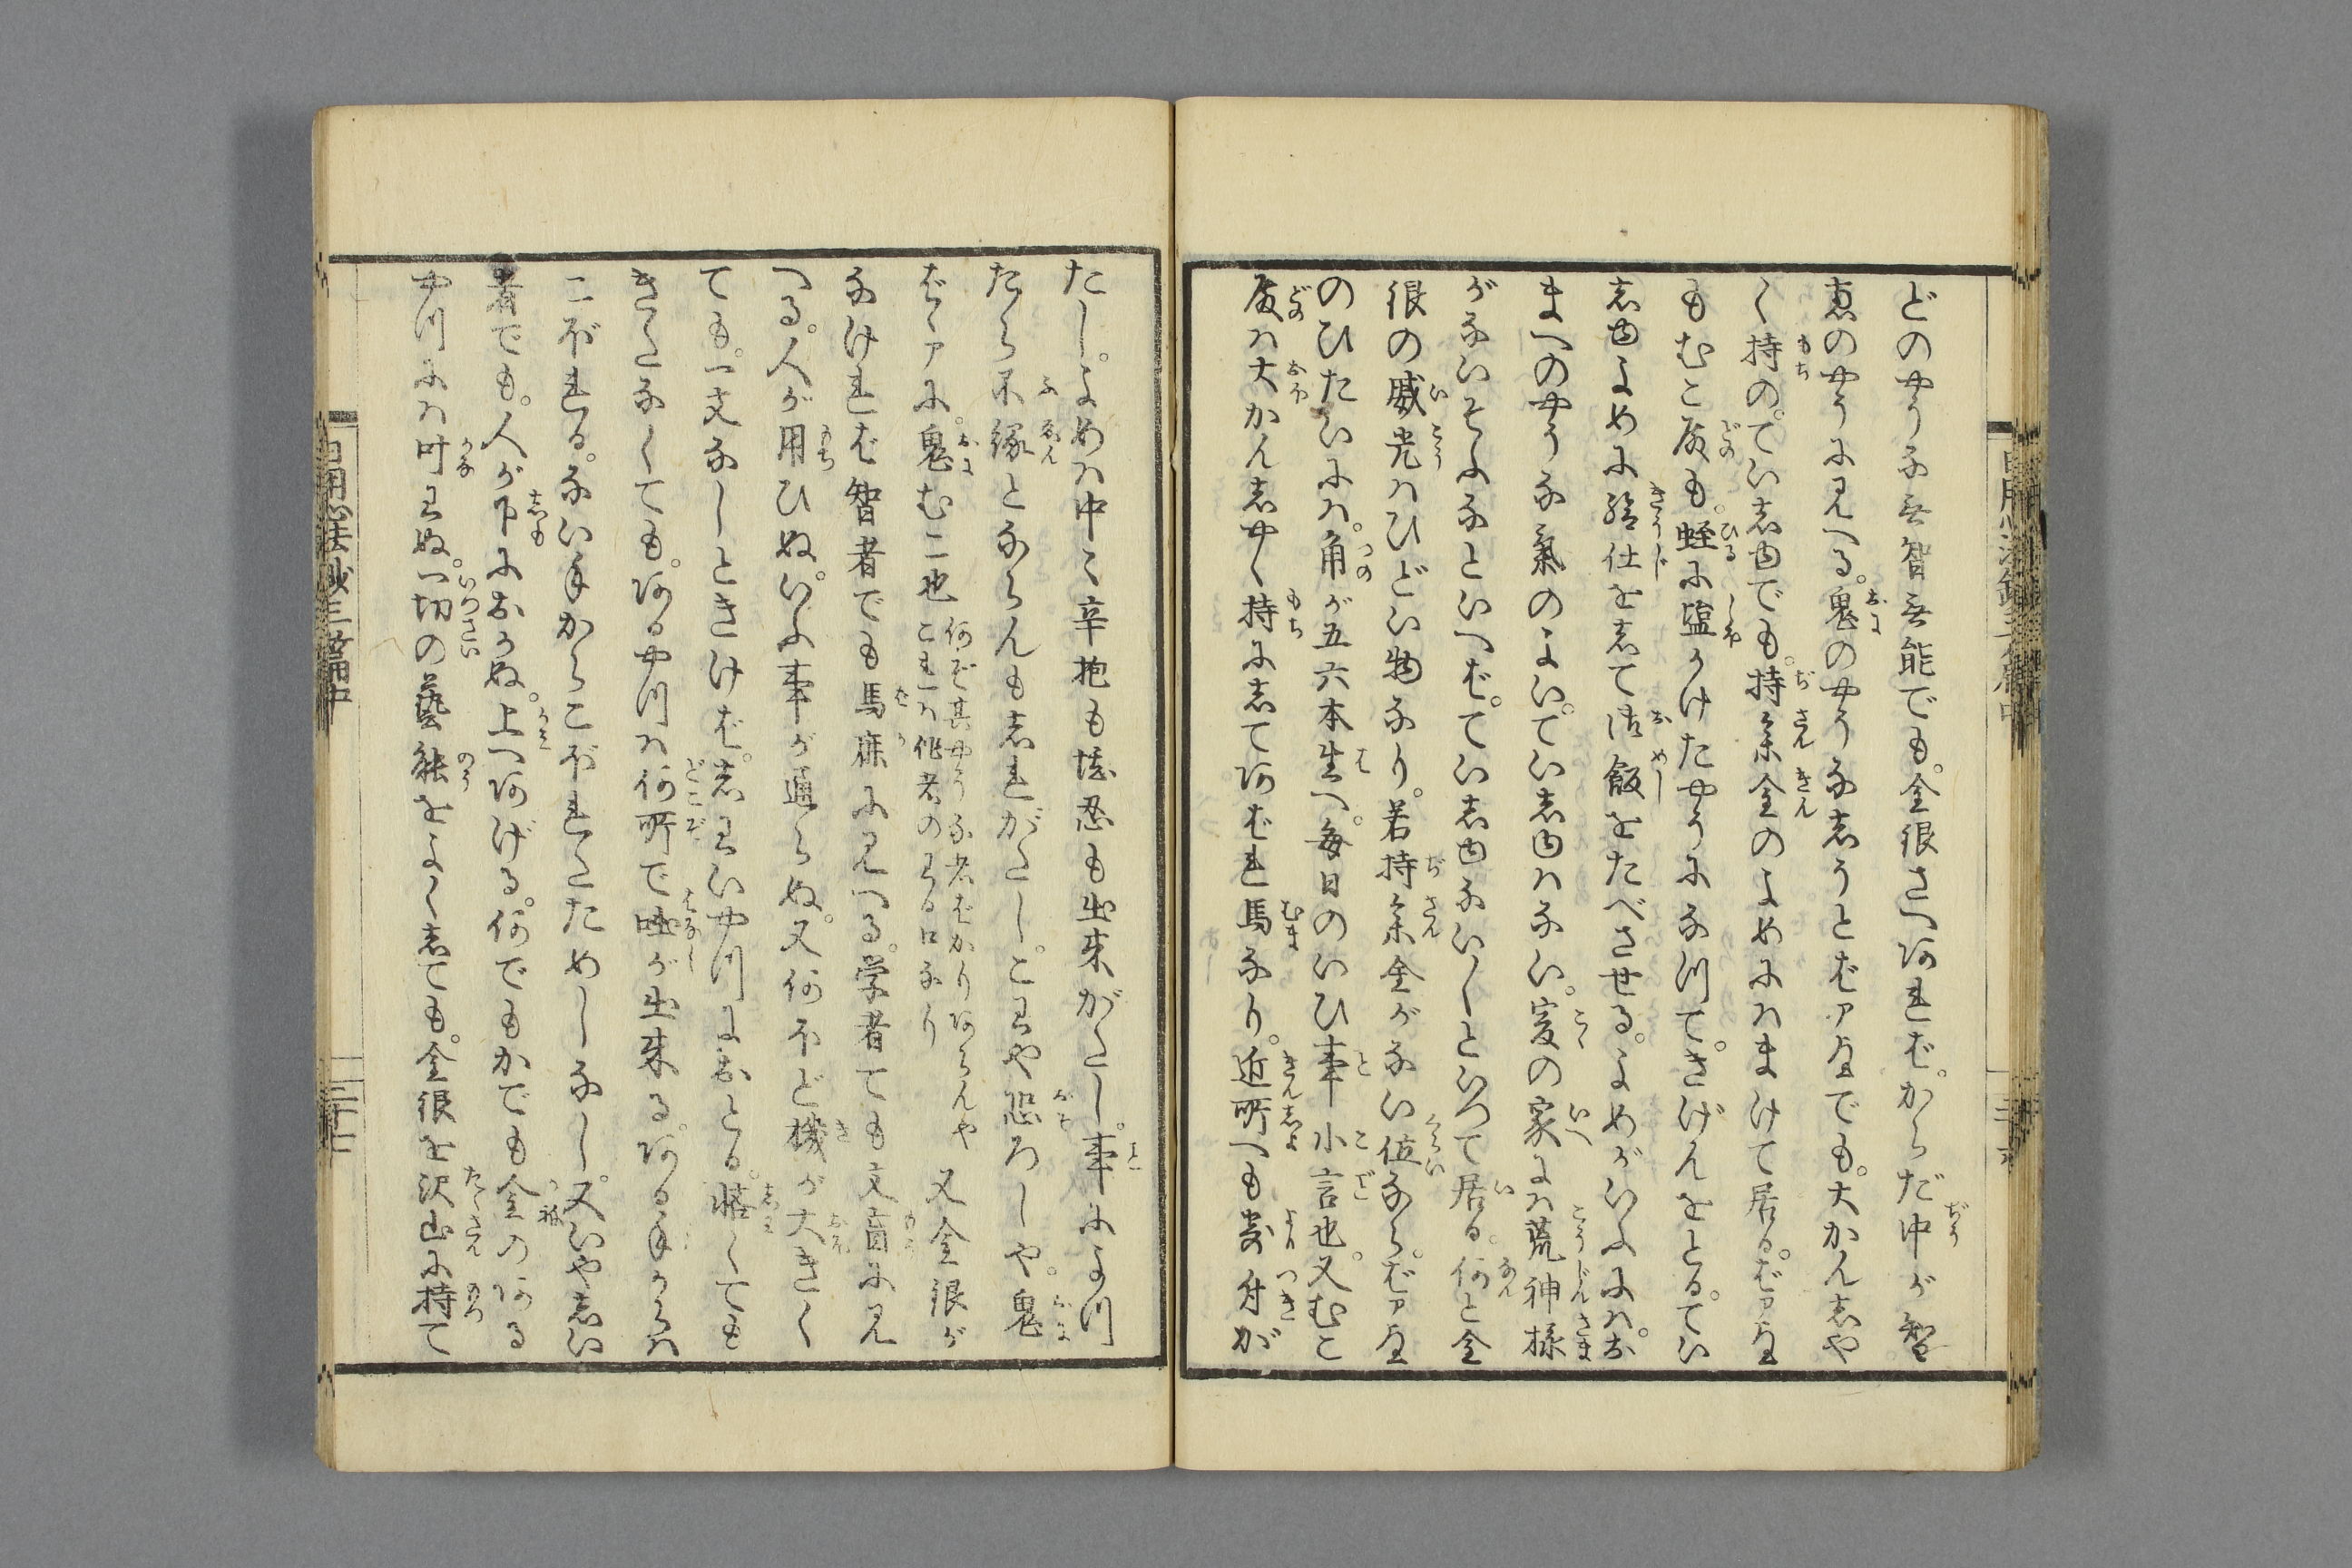 どのやうな無智無能でも。金銀さへあれば。からだ中が智
恵のやうに見へる。鬼のやうなしうとばアさまでも。大かんしや
く持の。ていしゆでも。持参金のよめにはまけて居る。ばアさま
もむこ殿も。蛭に塩かけたやうになつて。きげんをとる。てい
しゆよめに給仕をして御飯をたべさせる。よめがいふには。お
まへのやうな氣のよい。ていしゆはない。爰の家には荒神様
がないそふなといへば。ていしゆないしといつて居る。何と金
銀の威光はひどい物なり。若持参金がない位なら。ばアさま
のひたいには。角が五六本生へ。毎日のいひ事小言也。又むこ
殿は大かんしやく持にしてあばれ馬なり。近所へも寄付が
たし。よめは中々辛抱も堪忍も出来がたし。事によつ
たら不縁とならんもしれがたし。こわや恐ろしや。鬼
ばゝアに。鬼むこ也
何ぞ其やうな者ばかりあらんや
これは作者のわる口なり
又金銀が
なければ智者でも馬麻に見へる。学者ても文盲に見
へる。人が用ひぬ。いふ事が通らぬ。又何ほど機が大きく
ても。一文なしときけば。しわいやつにおとる。怪しくても
きたなくても。あるやつは何所で咄が出来る。ある手からは
こぼれる。ない手からこぼれたためしなし。又いやしい
者でも。人が下におかぬ。上へあげる。何でもかでも金のある
やつには叶わぬ。一切の藝能をよくしても。金銀を沢山に持て
三十七